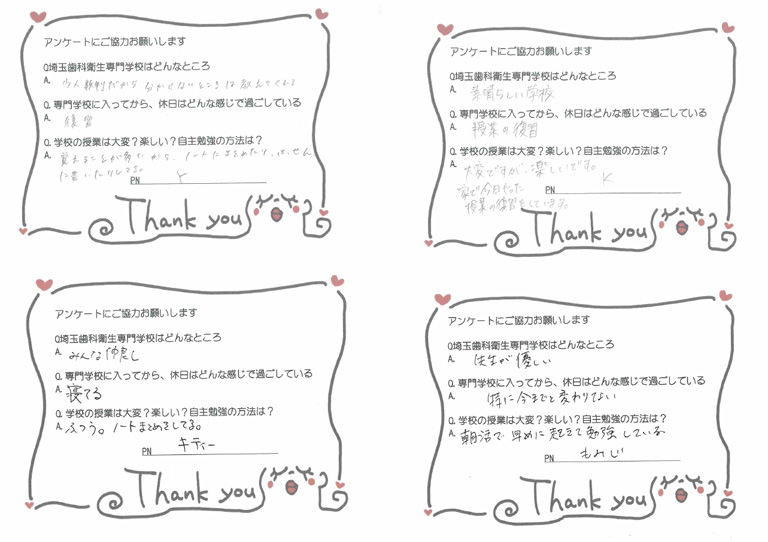 アンケートにご協力お願いします
Q埼玉歯科衛生専門学校はどんなところ
A. 少人数制だから分からないところは教えてくれる
Q. 専門学校に入ってから、休日はどんな感じで過ごしている
A. 復習
Q. 学校の授業は大変？楽しい？自主勉強の方法は？
A. 覚えることが多いから、ノートにまとめたり、ふせん
に書いたりしてる。
PN Y
Thank you
アンケートにご協力お願いします
Q埼玉歯科衛生専門学校はどんなところ
A. 素晴らしい学校
Q. 専門学校に入ってから、休日はどんな感じで過ごしている
A. 授業の復習
Q. 学校の授業は大変？楽しい？自主勉強の方法は？
A. 大変ですが、楽しいです。
家で今日やった
授業の復習をしています。
PN K
Thank you
アンケートにご協力お願いします
Q埼玉歯科衛生専門学校はどんなところ
A. みんな仲良し
Q. 専門学校に入ってから、休日はどんな感じで過ごしている
A. 寝てる
Q. 学校の授業は大変？楽しい？自主勉強の方法は？
A. ふつう。ノートまとめをしてる。
PN キティー
Thank you
アンケートにご協力お願いします
Q埼玉歯科衛生専門学校はどんなところ
A. 先生が優しい
Q. 専門学校に入ってから、休日はどんな感じで過ごしている
A. 特に今までと変わりない
Q. 学校の授業は大変？楽しい？自主勉強の方法は？
A. 朝活で早めに起きて勉強している
PN もみじ
Thank you